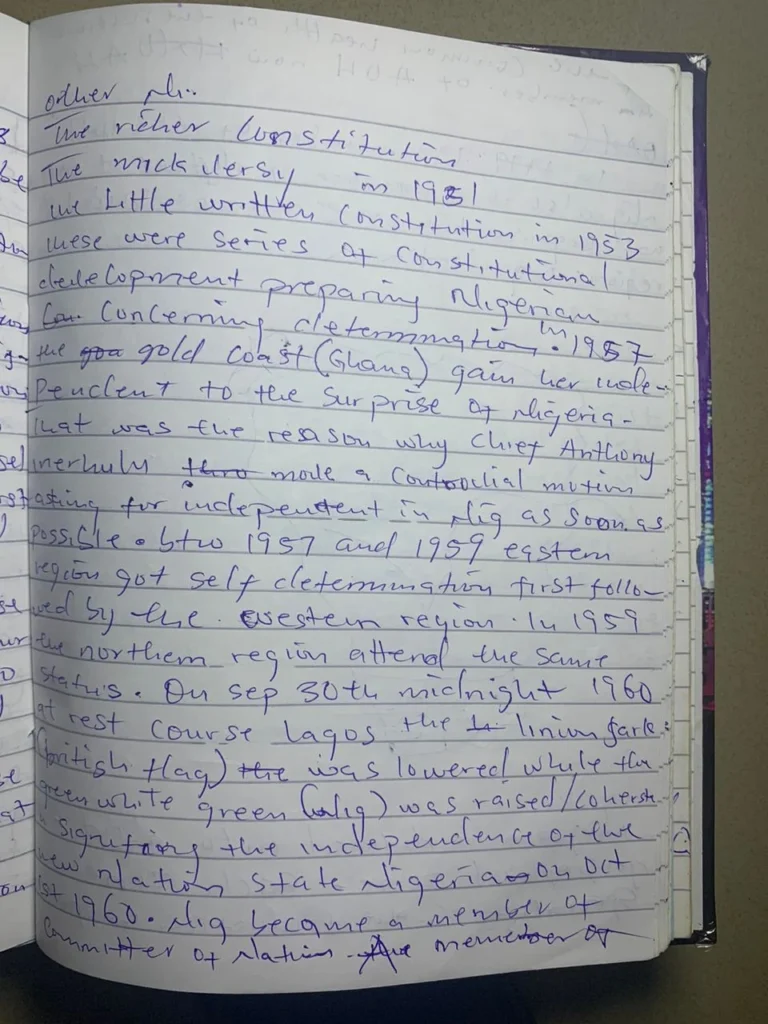 other Ni..
The richer Constitution
The mick dersy in 1951
the Little written Constitution in 1953
these were series of Constitutional
development preparing Nigerian
Concerning determination. In 1957
the gold Coast (Ghana) gain her inde-
pendent to the surprise of Nigeria-
that was the reason why Chief Anthony
made a motion
asking for independent in Nig as soon as
possible. btw 1957 and 1959 eastern
region got self determination first follo-
wed by the western region. In 1959
the northern region attend the same
status. On Sep 30th midnight 1960
at rest course Lagos the
(british flag) was lowered while the
green white green (Nig) was raised/
the independence of the
new Nation state Nigeria on Oct
1st 1960. Nig became a member of
Committer of Nation member of